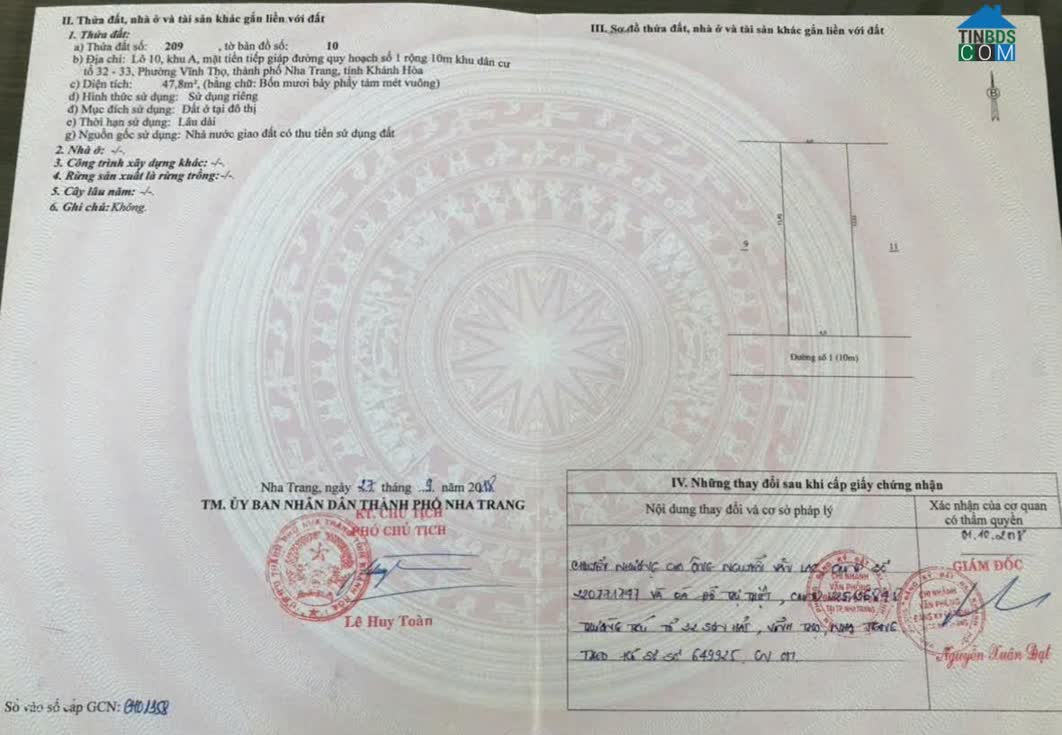 II. Thửa đất, nhà ở và tài sản khác gắn liền với đất
1. Thửa đất:
a) Thửa đất số: 209 , tờ bản đồ số: 10
b) Địa chỉ: Lô 10, khu A, mặt tiền tiếp giáp đường quy hoạch số 1 rộng 10m khu dân cư
tổ 32 - 33, Phường Vĩnh Thọ, thành phố Nha Trang, tỉnh Khánh Hòa
c) Diện tích: 47,8m², (bằng chữ: Bốn mươi bảy phẩy tám mét vuông)
d) Hình thức sử dụng: Sử dụng riêng
đ) Mục đích sử dụng: Đất ở tại đô thị
e) Thời hạn sử dụng: Lâu dài
g) Nguồn gốc sử dụng: Nhà nước giao đất có thu tiền sử dụng đất
2. Nhà ở: -/-.
3. Công trình xây dựng khác: -/-.
4. Rừng sản xuất là rừng trồng:-/-.
5. Cây lâu năm: -/-.
6. Ghi chú: Không.
Nha Trang, ngày 27 tháng 9 năm 2018
TM. ỦY BAN NHÂN DÂN THÀNH PHỐ NHA TRANG
KT. CHỦ TỊCH
PHÓ CHỦ TỊCH
Lê Huy Toàn
Số vào sổ cấp GCN:
III. Sơ đồ thửa đất, nhà ở và tài sản khác gắn liền với đất
TINBDS
COM
B
9
11
Đường số 1 (10m)
IV. Những thay đổi sau khi cấp giấy chứng nhận
Nội dung thay đổi và cơ sở pháp lý
Xác nhận của cơ quan
có thẩm quyền
01.10.2018
GIÁM ĐỐC
Chuyển nhượng cho ông Nguyễn Văn
220771797 và bà Đỗ Thị
Thường trú tổ Sơn Hải, Vĩnh Thọ, Nha Trang
Theo hồ sơ số 649925. CN 011.
CHI NHÁNH
VĂN PHÒNG
TẠI TP. NHA TRANG
CHI NHÁNH
VĂN PHÒNG
Nguyễn Xuân Đạt